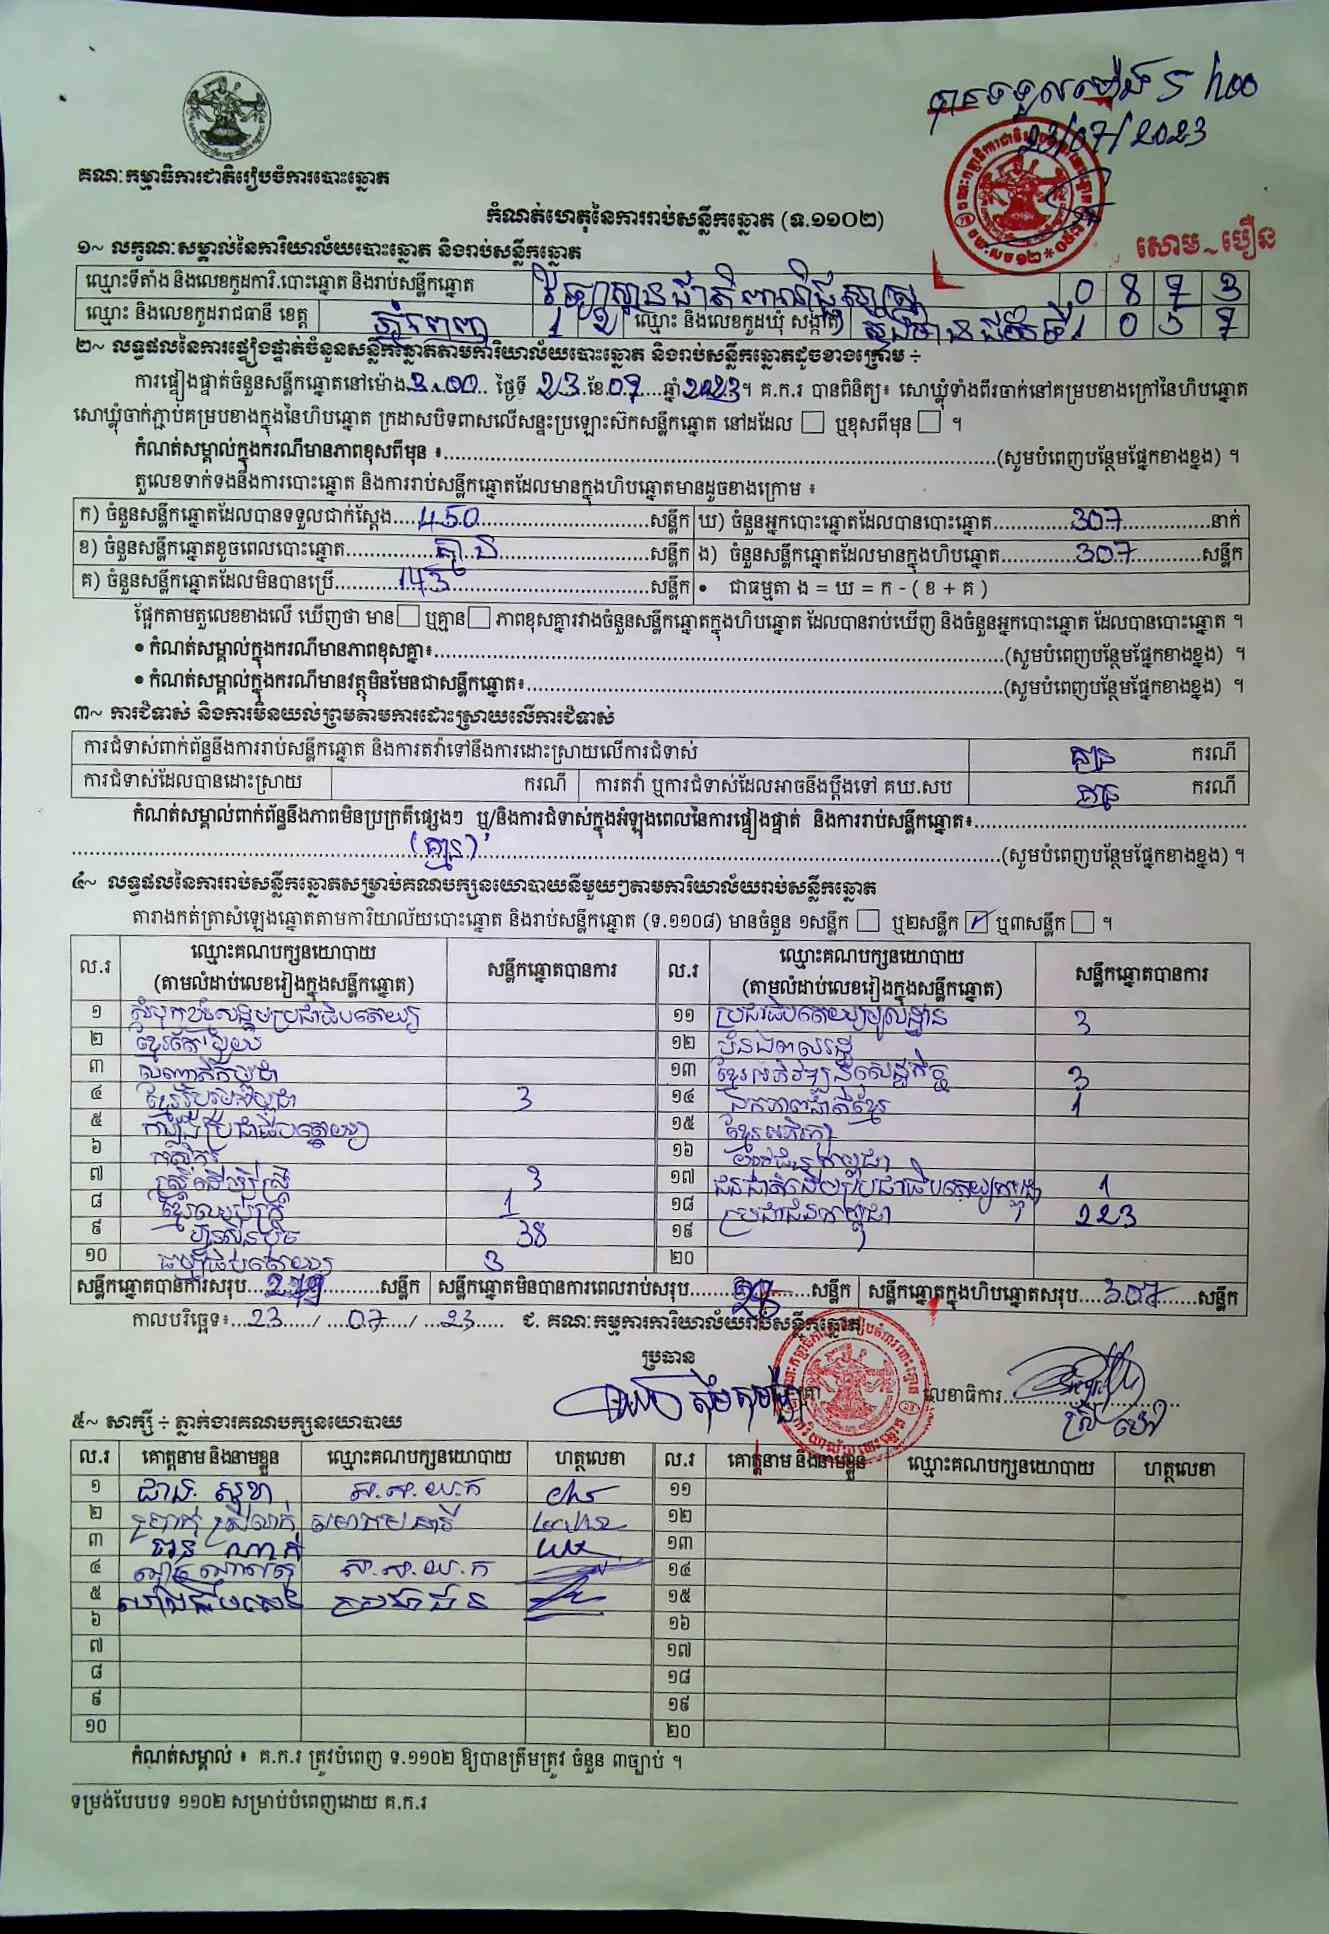 បានទទួលម៉ោង 5 h00
23/07/2023
គណៈកម្មាធិការជាតិរៀបចំការបោះឆ្នោត
កំណត់ហេតុនៃការរាប់សន្លឹកឆ្នោត (ទ.១១០២)
សោម ~ បឿន
១~ លក្ខណៈសម្គាល់នៃការិយាល័យបោះឆ្នោត និងរាប់សន្លឹកឆ្នោត
ឈ្មោះទីតាំង និងលេខកូដការិ.បោះឆ្នោត និងរាប់សន្លឹកឆ្នោត វិទ្យាស្ថានជាតិពាណិជ្ជសាស្ត្រ 0 8 7 3
ឈ្មោះ និងលេខកូដរាជធានី ខេត្ត ភ្នំពេញ 1 2 ឈ្មោះ និងលេខកូដឃុំ សង្កាត់ 0 5 7
២~ លទ្ធផលនៃការផ្ទៀងផ្ទាត់ចំនួនសន្លឹកឆ្នោតតាមការិយាល័យបោះឆ្នោត និងរាប់សន្លឹកឆ្នោតដូចខាងក្រោម ÷
ការផ្ទៀងផ្ទាត់ចំនួនសន្លឹកឆ្នោតនៅម៉ោង 3:00 ថ្ងៃទី 23 ខែ 07 ឆ្នាំ 2023។ គ.ក.រ បានពិនិត្យ៖ សោឃ្លុំទាំងពីរចាក់នៅគម្របខាងក្រៅនៃហិបឆ្នោត
សោឃ្លុំចាក់ភ្ជាប់គម្របខាងក្នុងនៃហិបឆ្នោត ក្រដាសបិទពាសលើសន្ទះប្រឡោះស៊កសន្លឹកឆ្នោត នៅដដែល ☐ ឬខុសពីមុន ☐ ។
កំណត់សម្គាល់ក្នុងករណីមានភាពខុសពីមុន ៖ (សូមបំពេញបន្ថែមផ្នែកខាងខ្នង) ។
តួលេខទាក់ទងនឹងការបោះឆ្នោត និងការរាប់សន្លឹកឆ្នោតដែលមានក្នុងហិបឆ្នោតមានដូចខាងក្រោម ៖
ក) ចំនួនសន្លឹកឆ្នោតដែលបានទទួលជាក់ស្តែង 450 សន្លឹក ឃ) ចំនួនអ្នកបោះឆ្នោតដែលបានបោះឆ្នោត 307 នាក់
ខ) ចំនួនសន្លឹកឆ្នោតខូចពេលបោះឆ្នោត គ្មាន សន្លឹក ង) ចំនួនសន្លឹកឆ្នោតដែលមានក្នុងហិបឆ្នោត 307 សន្លឹក
គ) ចំនួនសន្លឹកឆ្នោតដែលមិនបានប្រើ 143 សន្លឹក • ជាធម្មតា ង = ឃ = ក - ( ខ + គ )
ផ្អែកតាមតួលេខខាងលើ ឃើញថា មាន ☐ ឬគ្មាន ☐ ភាពខុសគ្នារវាងចំនួនសន្លឹកឆ្នោតក្នុងហិបឆ្នោត ដែលបានរាប់ឃើញ និងចំនួនអ្នកបោះឆ្នោត ដែលបានបោះឆ្នោត ។
• កំណត់សម្គាល់ក្នុងករណីមានភាពខុសគ្នា៖ (សូមបំពេញបន្ថែមផ្នែកខាងខ្នង) ។
• កំណត់សម្គាល់ក្នុងករណីមានវត្ថុមិនមែនជាសន្លឹកឆ្នោត៖ (សូមបំពេញបន្ថែមផ្នែកខាងខ្នង) ។
៣~ ការជំទាស់ និងការមិនយល់ព្រមតាមការដោះស្រាយលើការជំទាស់
ការជំទាស់ពាក់ព័ន្ធនឹងការរាប់សន្លឹកឆ្នោត និងការតវ៉ាទៅនឹងការដោះស្រាយលើការជំទាស់ គ្មាន ករណី
ការជំទាស់ដែលបានដោះស្រាយ ករណី ការតវ៉ា ឬការជំទាស់ដែលអាចនឹងប្តឹងទៅ គឃ.សប គ្មាន ករណី
កំណត់សម្គាល់ពាក់ព័ន្ធនឹងភាពមិនប្រក្រតីផ្សេងៗ ឬ/និងការជំទាស់ក្នុងអំឡុងពេលនៃការផ្ទៀងផ្ទាត់ និងការរាប់សន្លឹកឆ្នោត៖
(គ្មាន) (សូមបំពេញបន្ថែមផ្នែកខាងខ្នង) ។
៤~ លទ្ធផលនៃការរាប់សន្លឹកឆ្នោតសម្រាប់គណបក្សនយោបាយនីមួយៗតាមការិយាល័យរាប់សន្លឹកឆ្នោត
តារាងកត់ត្រាសំឡេងឆ្នោតតាមការិយាល័យបោះឆ្នោត និងរាប់សន្លឹកឆ្នោត (ទ.១១០៨) មានចំនួន ១សន្លឹក ☐ ឬ២សន្លឹក ☑ ឬ៣សន្លឹក ☐ ។
ល.រ ឈ្មោះគណបក្សនយោបាយ (តាមលំដាប់លេខរៀងក្នុងសន្លឹកឆ្នោត) សន្លឹកឆ្នោតបានការ ល.រ ឈ្មោះគណបក្សនយោបាយ (តាមលំដាប់លេខរៀងក្នុងសន្លឹកឆ្នោត) សន្លឹកឆ្នោតបានការ
១ សំបុកឃ្មុំសង្គមប្រជាធិបតេយ្យ ១១ ប្រជាធិបតេយ្យមូលដ្ឋាន 3
២ ១២
៣ ១៣ ខ្មែរអភិវឌ្ឍន៍សេដ្ឋកិច្ច 3
៤ ខ្មែររួបរួមជាតិ 3 ១៤ ឯកភាពជាតិខ្មែរ 1
៥ កម្លាំងប្រជាធិបតេយ្យ ១៥
៦ កសិករ ១៦
៧ ស្ត្រីដើម្បីស្ត្រី 3 ១៧ ជនជាតិដើមប្រជាធិបតេយ្យកម្ពុជា 1
៨ 1 ១៨ ប្រជាជនកម្ពុជា 223
៩ ហ៊្វុនស៊ិនប៉ិច 38 ១៩
១០ ធម្មាធិបតេយ្យ 3 ២០
សន្លឹកឆ្នោតបានការសរុប 279 សន្លឹក សន្លឹកឆ្នោតមិនបានការពេលរាប់សរុប 28 សន្លឹក សន្លឹកឆ្នោតក្នុងហិបឆ្នោតសរុប 307 សន្លឹក
កាលបរិច្ឆេទ៖ 23 / 07 / 23 ជ. គណៈកម្មការការិយាល័យរាប់សន្លឹកឆ្នោត
ប្រធាន
លេខាធិការ
៥~ សាក្សី ÷ ភ្នាក់ងារគណបក្សនយោបាយ
ល.រ គោត្តនាម និងនាមខ្លួន ឈ្មោះគណបក្សនយោបាយ ហត្ថលេខា ល.រ គោត្តនាម និងនាមខ្លួន ឈ្មោះគណបក្សនយោបាយ ហត្ថលេខា
១ ស.ស.យ.ក ១១
២ ១២
៣ ១៣
៤ ស.ស.យ.ក ១៤
៥ ១៥
៦ ១៦
៧ ១៧
៨ ១៨
៩ ១៩
១០ ២០
កំណត់សម្គាល់ ៖ គ.ក.រ ត្រូវបំពេញ ទ.១១០២ ឱ្យបានត្រឹមត្រូវ ចំនួន ៣ច្បាប់ ។
ទម្រង់បែបបទ ១១០២ សម្រាប់បំពេញដោយ គ.ក.រ